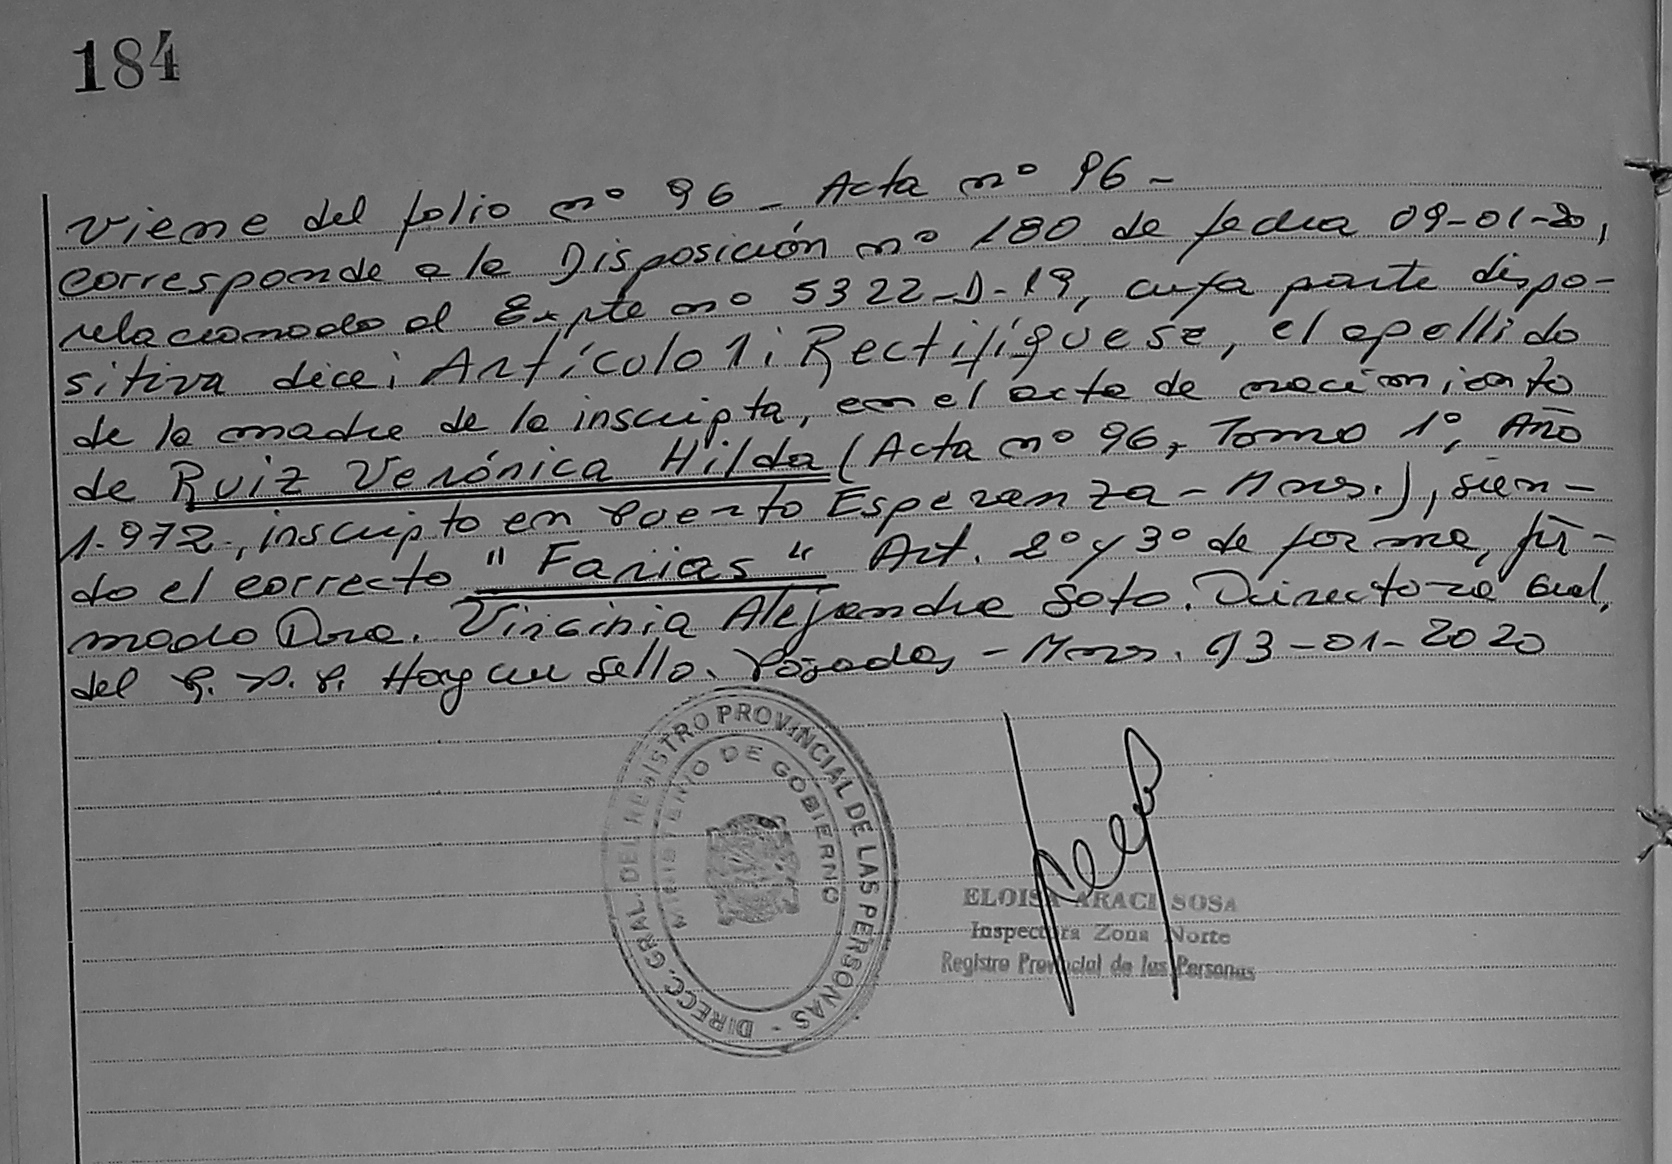 184
Viene del folio nº 96 - Acta nº 96 -
Corresponde a la Disposición nº 180 de fecha 09-01-20,
relacionado al Expte nº 5322-D-19, cuya parte dispo-
sitiva dice: Artículo 1: Rectifíquese, el apellido
de la madre de la inscripta, en el acta de nacimiento
de Ruiz Verónica Hilda (Acta nº 96, Tomo 1º, Año
1.972, inscripto en Puerto Esperanza - Mnes.), sien-
do el correcto "Farias" Art. 2º y 3º de forma, fir-
mado Dra. Virginia Alejandra Soto. Directora Gral.
del R. P. P. Hay un sello. Posadas - Mnes. 13-01-2020
DIRECC. GRAL. DEL REGISTRO PROVINCIAL DE LAS PERSONAS -
MINISTERIO DE GOBIERNO
ELOISA ARACI SOSA
Inspectora Zona Norte
Registro Provincial de las Personas